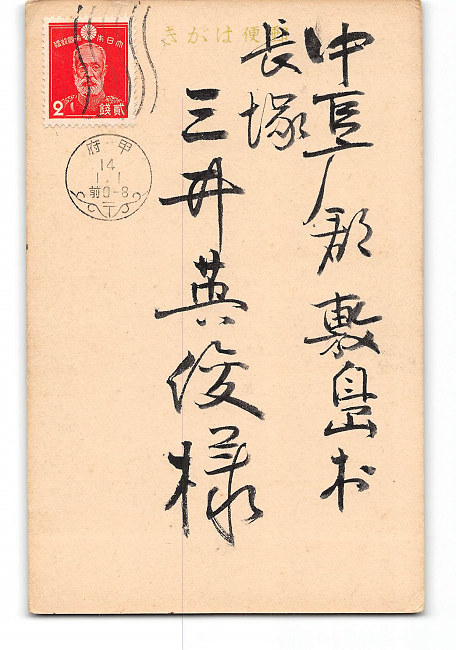 郵便はがき
中巨摩郡敷島村
長塚
三井英俊様
大日本帝國郵便
2
貳錢
甲府
14
1.1
前0-8